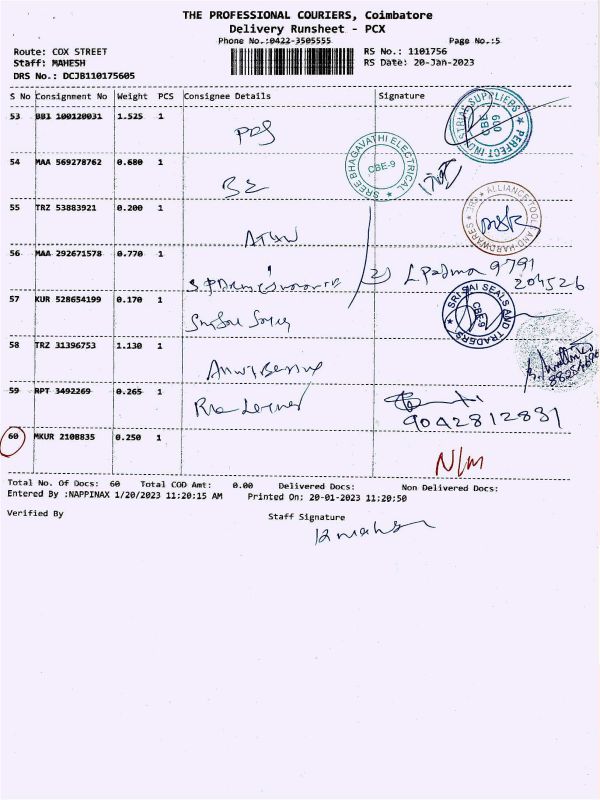 THE PROFESSIONAL COURIERS, Coimbatore
Delivery Runsheet - PCX
Phone No.:0422-3505555 Page No.:5
Route: COX STREET RS No.: 1101756
Staff: MAHESH RS Date: 20-Jan-2023
DRS No.: DCJB110175605
S No Consignment No Weight PCS Consignee Details Signature
53 BBI 100120031 1.525 1
PERFECT INDUSTRIAL SUPPLIERS ★ CBE 009
54 MAA 569278762 0.680 1
SREE BHAGAVATHI ELECTRICAL ★ CBE-9
55 TRZ 53883921 0.200 1
ALLIANCE TOOL AND HARDWARES
56 MAA 292671578 0.770 1 2) L Padma 9791
204526
57 KUR 528654199 0.170 1
SRI SAI SEALS AND TRADERS ★ CBE-9
58 TRZ 31396753 1.130 1
59 RPT 3492269 0.265 1
9042812831
60 MKUR 2108835 0.250 1
N/m
Total No. Of Docs: 60 Total COD Amt: 0.00 Delivered Docs: Non Delivered Docs:
Entered By :NAPPINAX 1/20/2023 11:20:15 AM Printed On: 20-01-2023 11:20:50
Verified By Staff Signature